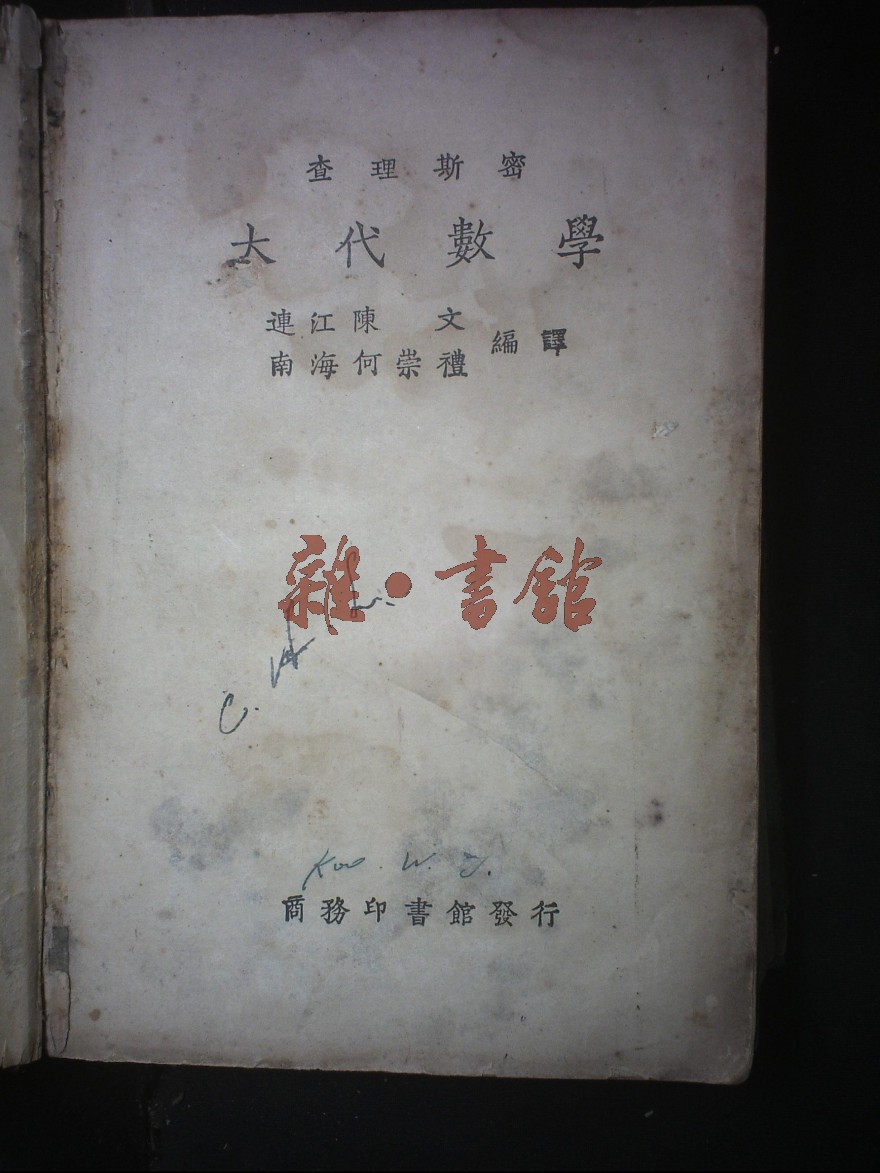 查理斯密
大代數學
連江陳 文
南海何崇禮
編譯
雜·書館
C.
Koo W. J.
商務印書館發行